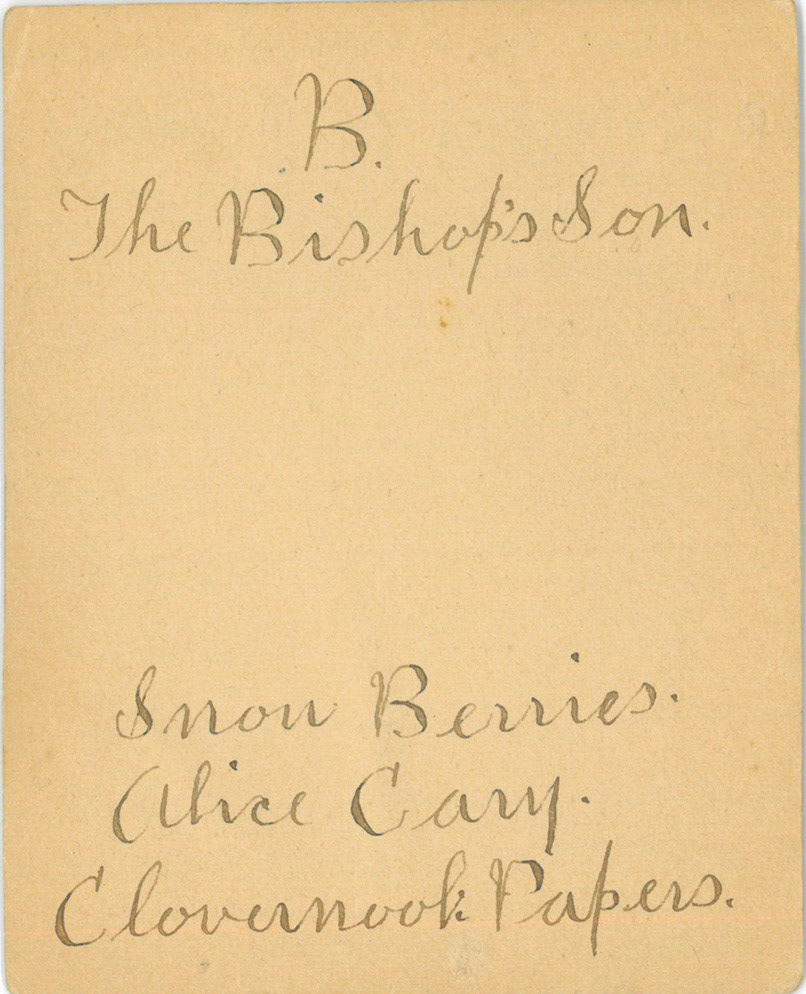 B.
The Bishop's Son.
Snow Berries.
Alice Cary.
Clovernook Papers.